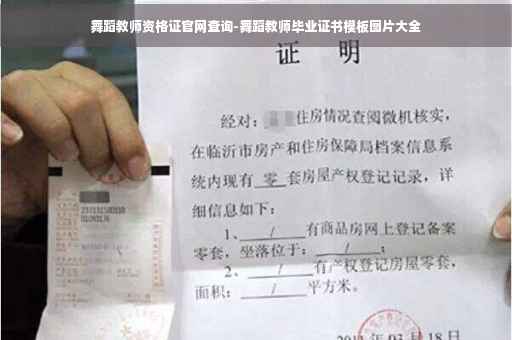 舞蹈教师资格证官网查询-舞蹈教师毕业证书模板图片大全
证 明
经对: 住房情况查阅微机核实,
在临沂市房产和住房保障局档案信息系
统内现有 零 套房屋产权登记记录, 详
细信息如下:
1、 / 有商品房网上登记备案
零套, 坐落位于: / ;
2、 / 有产权登记房屋零套,
面积: / 平方米。
03 月 18 日